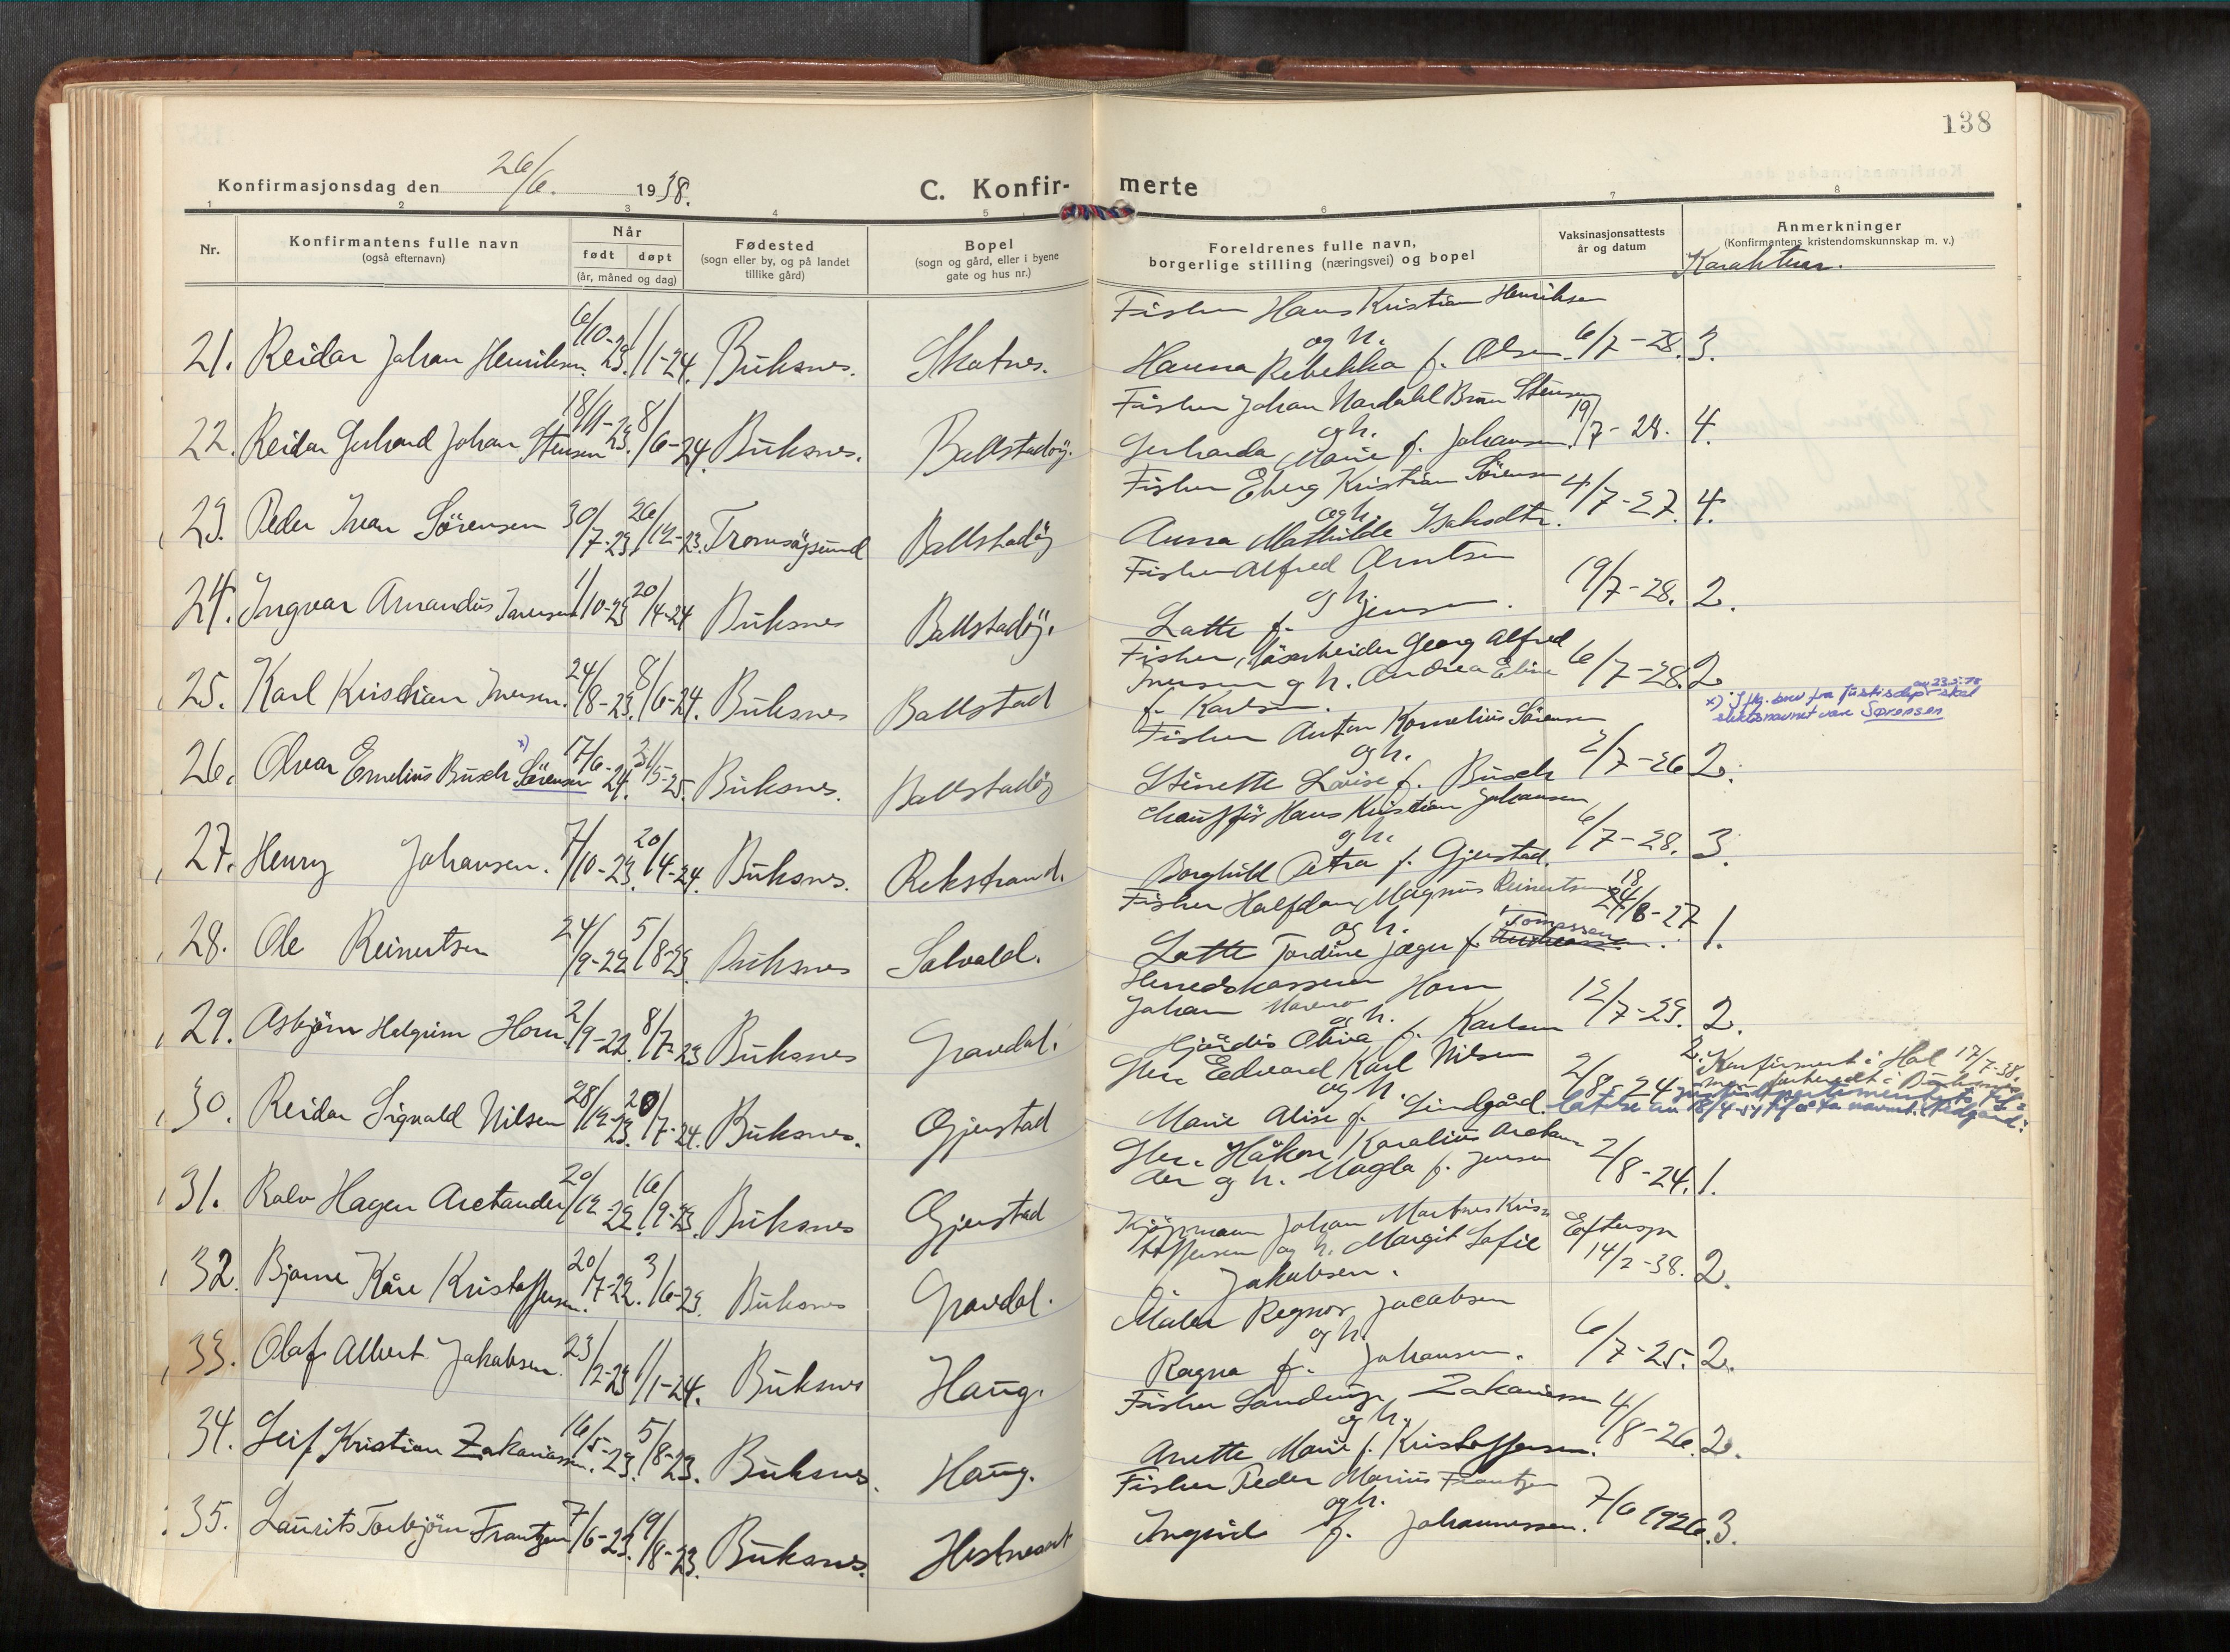 138
Konfirmasjonsdag den 26/6. 1938.
C. Konfir- merte
1 2 3 4 5 6 7 8
Nr.
Konfirmantens fulle navn
(også efternavn)
Når
født døpt
(år, måned og dag)
Fødested
(sogn eller by, og på landet
tillike gård)
Bopel
(sogn og gård, eller i byene
gate og hus nr.)
Foreldrenes fulle navn,
borgerlige stilling (næringsvei) og bopel
Vaksinasjonsattests
år og datum
Anmerkninger
(Konfirmantens kristendomskunnskap m. v.)
Karakterer.
Fisker Hans Kristian Henriksen
og h.
21. Reidar Johan Henriksen 6/10-23. 1/1-24. Buksnes. Skotnes. Hanna Rebekka f. Olsen. 6/7-28. 3.
Fisker Johan Nordahl Brun Stensen
og h.
22. Reidar Gerhard Johan Stensen 18/11-23. 8/6-24. Buksnes. Ballstadøy. Gerharda Marie f. Johansen. 19/7-28. 4.
Fisker Eberg Kristian Sörensen
og h.
23. Peder Ivan Sörensen 30/7-23. 26/12-23. Tromsøysund Ballstadöy Anna Mathilde Isaksdtr. 4/7-27. 4.
Fisker Alfred Arntsen
og h.
24. Ingvar Amandus 1/10-23 20/4-24 Buksnes Ballstadöy. Lotte f. Jensen. 19/7-28. 2.
Fisker, Georg Alfred
25. Karl Kristian Iversen. 24/8-23. 8/6-24. Buksnes Ballstad Iversen og h. Andrea Eline 6/7-28. 2
f. Karlsen.
x) Iflg. brev fra Justisdep. av 23.5.78 skal
slektsnavnet være Sørensen
Fisker Anton Kornelius Sörensen
og h.
26. Olvar Emelius Busch Sörensen x) 17/6-24. 31/5-25. Buksnes. Ballstadöy Stinette Lovise f. Busch 2/7-26 2.
Chauffør Hans Kristian Johansen
og h.
27. Henry Johansen. 7/10-23. 20/4-24. Buksnes. Rekstrand. Borghild Petra f. Gjerstad. 6/7-28. 3.
Fisker Halfdan Magnus Reinertsen
og h.
28. Ole Reinertsen 24/9-22 5/8-23 Buksnes Solvold. Lotte Tordine Jæger f. Tomassen 18/8-27 1.
Herredskasserer
Johan Horn
og h.
29. Asbjörn Helgrim Horn 2/9-22. 8/7-23 Buksnes Gravdal. Hjördis Oliva f. Karlsen 12/7-23. 2.
Edvard Karl Nilsen
og h.
30. Reidar Sigvald Nilsen 28/12-23. 20/7-24. Buksnes. Gjerstad Marie Alise f. Lindgård 2/8-24 2. Konfirmert i Hol 17/7-38.
men forberedt i Buksnes
Justisdepartementets til-
latelse av 18/4-51 til å ta navnet
Håkon Karolius Arctan
31. Ralv Hagen Arctander 20/12-22. 16/9-23. Buksnes Gjerstad der og h. Magda f. Jensen 2/8-24. 1.
Kjöpmann Johan Martinus Kris
32. Bjarne Kåre Kristoffersen. 20/7-22. 3/6-23. Buksnes Gravdal. toffersen og h. Margit Sofie Eftersyn
14/2-38. 2.
f. Jakobsen.
Maler Regnor Jacobsen
og h.
33. Olaf Albert Jakobsen. 23/12-23 1/1-24. Buksnes Haug. Ragna f. Johansen. 6/7-25. 2.
Fisker Zakariassen
og h.
34. Leif Kristian Zakariassen. 16/5-23. 5/8-23. Buksnes. Haug. Anette Marie f. Kristoffersen. 4/8-26. 2.
Fisker Peder Marius Frantzen
og h.
35. Laurits Torbjörn Frantzen 7/6-23. 19/8-23. Buksnes. Ingrid f. Johannessen. 7/6 1926. 3.